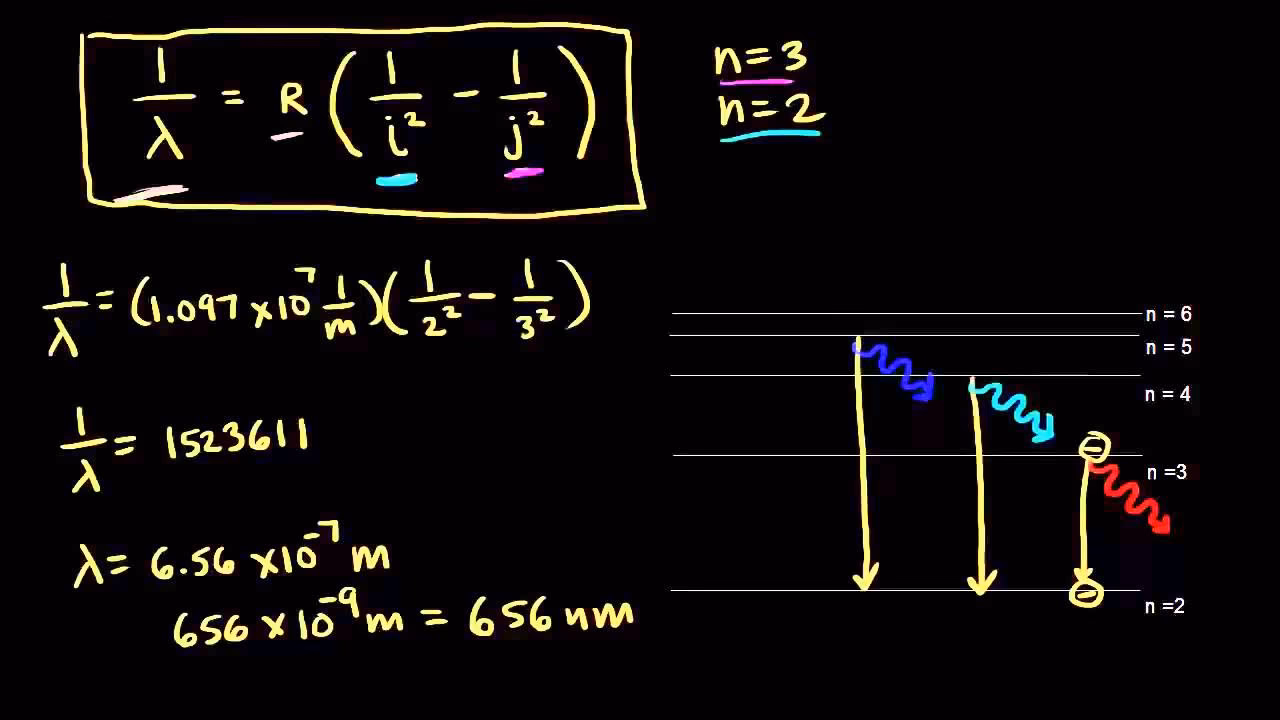 1/λ = R (1/i² − 1/j²)
n=3
n=2
1/λ = (1.097 ×10⁷ 1/m)(1/2² − 1/3²)
1/λ = 1523611
λ = 6.56 ×10⁻⁷ m
656 ×10⁻⁹ m = 656 nm
n = 6
n = 5
n = 4
n =3
n =2